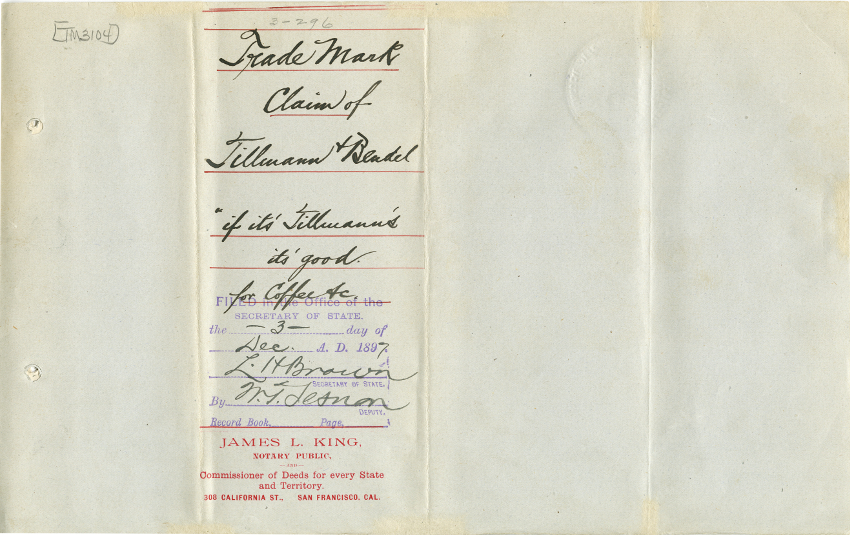 [TM3104]
3-296
Trade Mark
Claim of
Tillmann & Bendel
"if it's Tillmann's
it's good.
for Coffee &c.
FILED in the Office of the
SECRETARY OF STATE.
the -3- day of
Dec. A. D. 1897
L. H Brown
SECRETARY OF STATE.
By W. T.
DEPUTY.
Record Book, Page,
JAMES L. KING,
NOTARY PUBLIC,
—AND—
Commissioner of Deeds for every State
and Territory.
308 CALIFORNIA ST., SAN FRANCISCO, CAL.